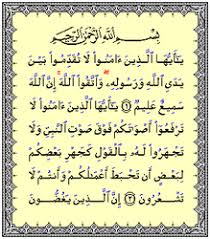 بِسْمِ ٱللَّهِ ٱلرَّحْمَٰنِ ٱلرَّحِيمِ
يَٰٓأَيُّهَا ٱلَّذِينَ ءَامَنُوا۟ لَا تُقَدِّمُوا۟ بَيْنَ
يَدَىِ ٱللَّهِ وَرَسُولِهِۦ ۖ وَٱتَّقُوا۟ ٱللَّهَ ۚ إِنَّ ٱللَّهَ
سَمِيعٌ عَلِيمٌ ١ يَٰٓأَيُّهَا ٱلَّذِينَ ءَامَنُوا۟ لَا
تَرْفَعُوٓا۟ أَصْوَٰتَكُمْ فَوْقَ صَوْتِ ٱلنَّبِىِّ وَلَا
تَجْهَرُوا۟ لَهُۥ بِٱلْقَوْلِ كَجَهْرِ بَعْضِكُمْ
لِبَعْضٍ أَن تَحْبَطَ أَعْمَٰلُكُمْ وَأَنتُمْ لَا
تَشْعُرُونَ ٢ إِنَّ ٱلَّذِينَ يَغُضُّونَ